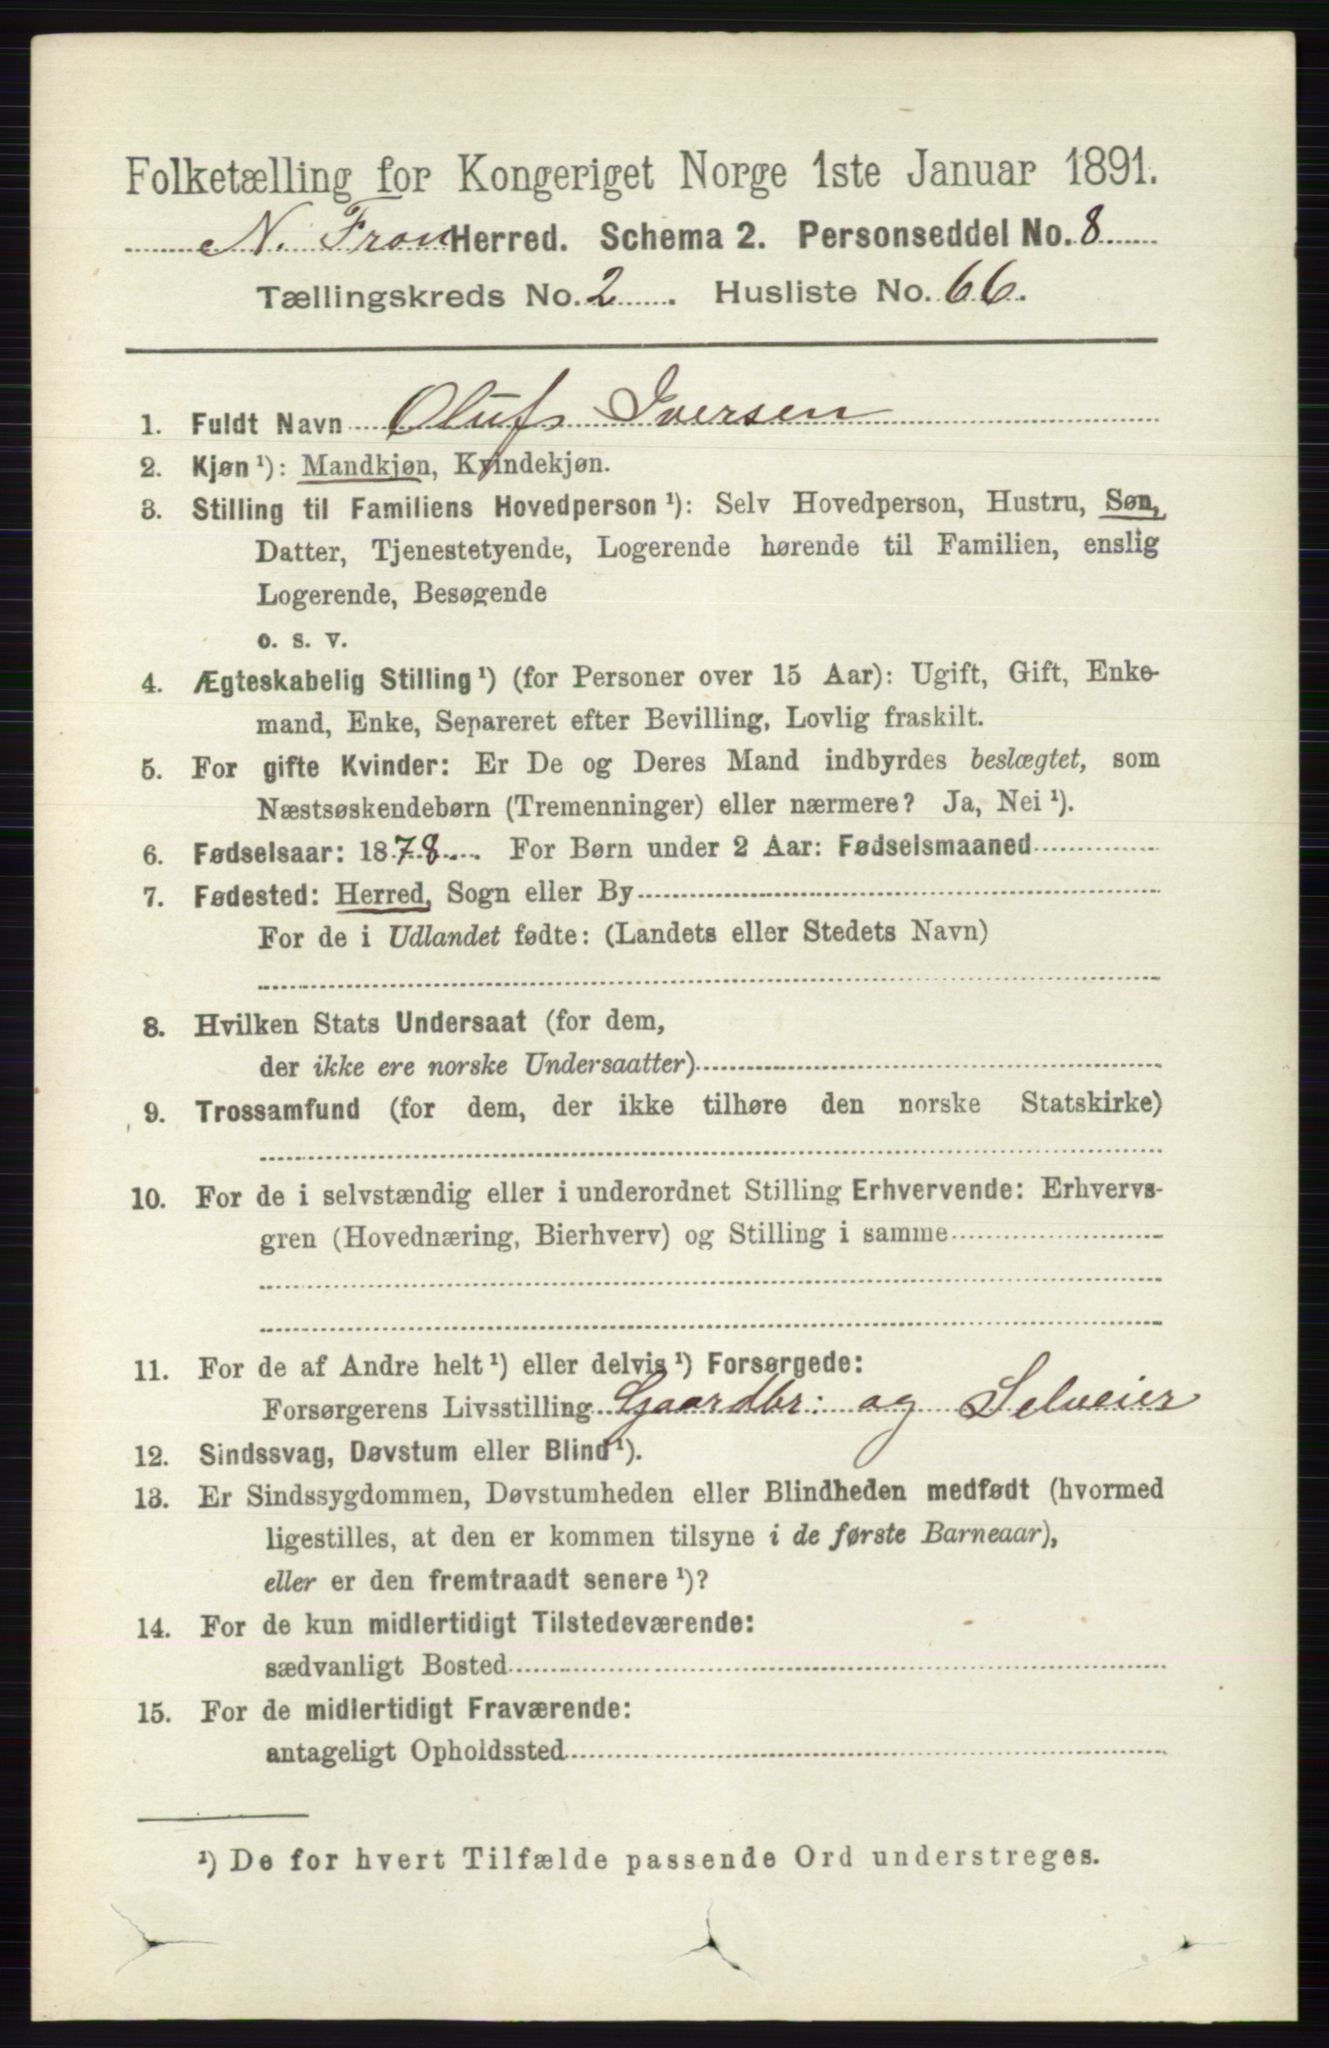 Folketælling for Kongeriget Norge 1ste Januar 1891.
N. Fron Herred. Schema 2. Personseddel No. 8
Tællingskreds No. 2. Husliste No. 66.
1. Fuldt Navn Oluf Iversen
2. Kjøn ¹): Mandkjøn, Kvindekjøn.
3. Stilling til Familiens Hovedperson ¹): Selv Hovedperson, Hustru, Søn,
Datter, Tjenestetyende, Logerende hørende til Familien, enslig
Logerende, Besøgende
o. s. v.
4. Ægteskabelig Stilling ¹) (for Personer over 15 Aar): Ugift, Gift, Enke-
mand, Enke, Separeret efter Bevilling, Lovlig fraskilt.
5. For gifte Kvinder: Er De og Deres Mand indbyrdes beslægtet, som
Næstsøskendebørn (Tremenninger) eller nærmere? Ja, Nei ¹).
6. Fødselsaar: 1878. For Børn under 2 Aar: Fødselsmaaned
7. Fødested: Herred, Sogn eller By
For de i Udlandet fødte: (Landets eller Stedets Navn)
8. Hvilken Stats Undersaat (for dem,
der ikke ere norske Undersaatter)
9. Trossamfund (for dem, der ikke tilhøre den norske Statskirke)
10. For de i selvstændig eller i underordnet Stilling Erhvervende: Erhvervs-
gren (Hovednæring, Bierhverv) og Stilling i samme
11. For de af Andre helt ¹) eller delvis ¹) Forsørgede:
Forsørgerens Livsstilling Gaardbr: og Selveier
12. Sindssvag, Døvstum eller Blind ¹).
13. Er Sindssygdommen, Døvstumheden eller Blindheden medfødt (hvormed
ligestilles, at den er kommen tilsyne i de første Barneaar),
eller er den fremtraadt senere ¹)?
14. For de kun midlertidigt Tilstedeværende:
sædvanligt Bosted
15. For de midlertidigt Fraværende:
antageligt Opholdssted
¹) De for hvert Tilfælde passende Ord understreges.